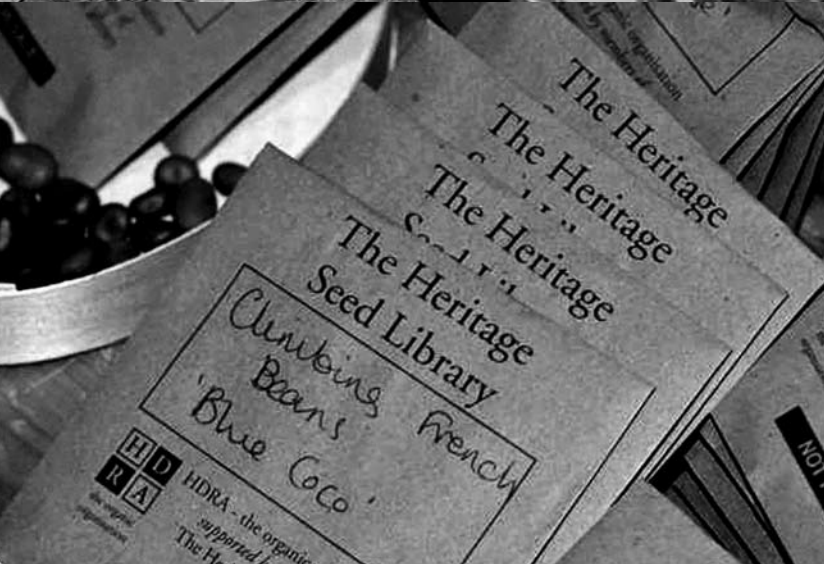 The Heritage
The Heritage
The Heritage
The Heritage
Seed Library
Climbing French
Beans
'Blue Coco'
H D
R A
the organic
organisation
HDRA - the organic
supported
The He
organisation
by members
NOT